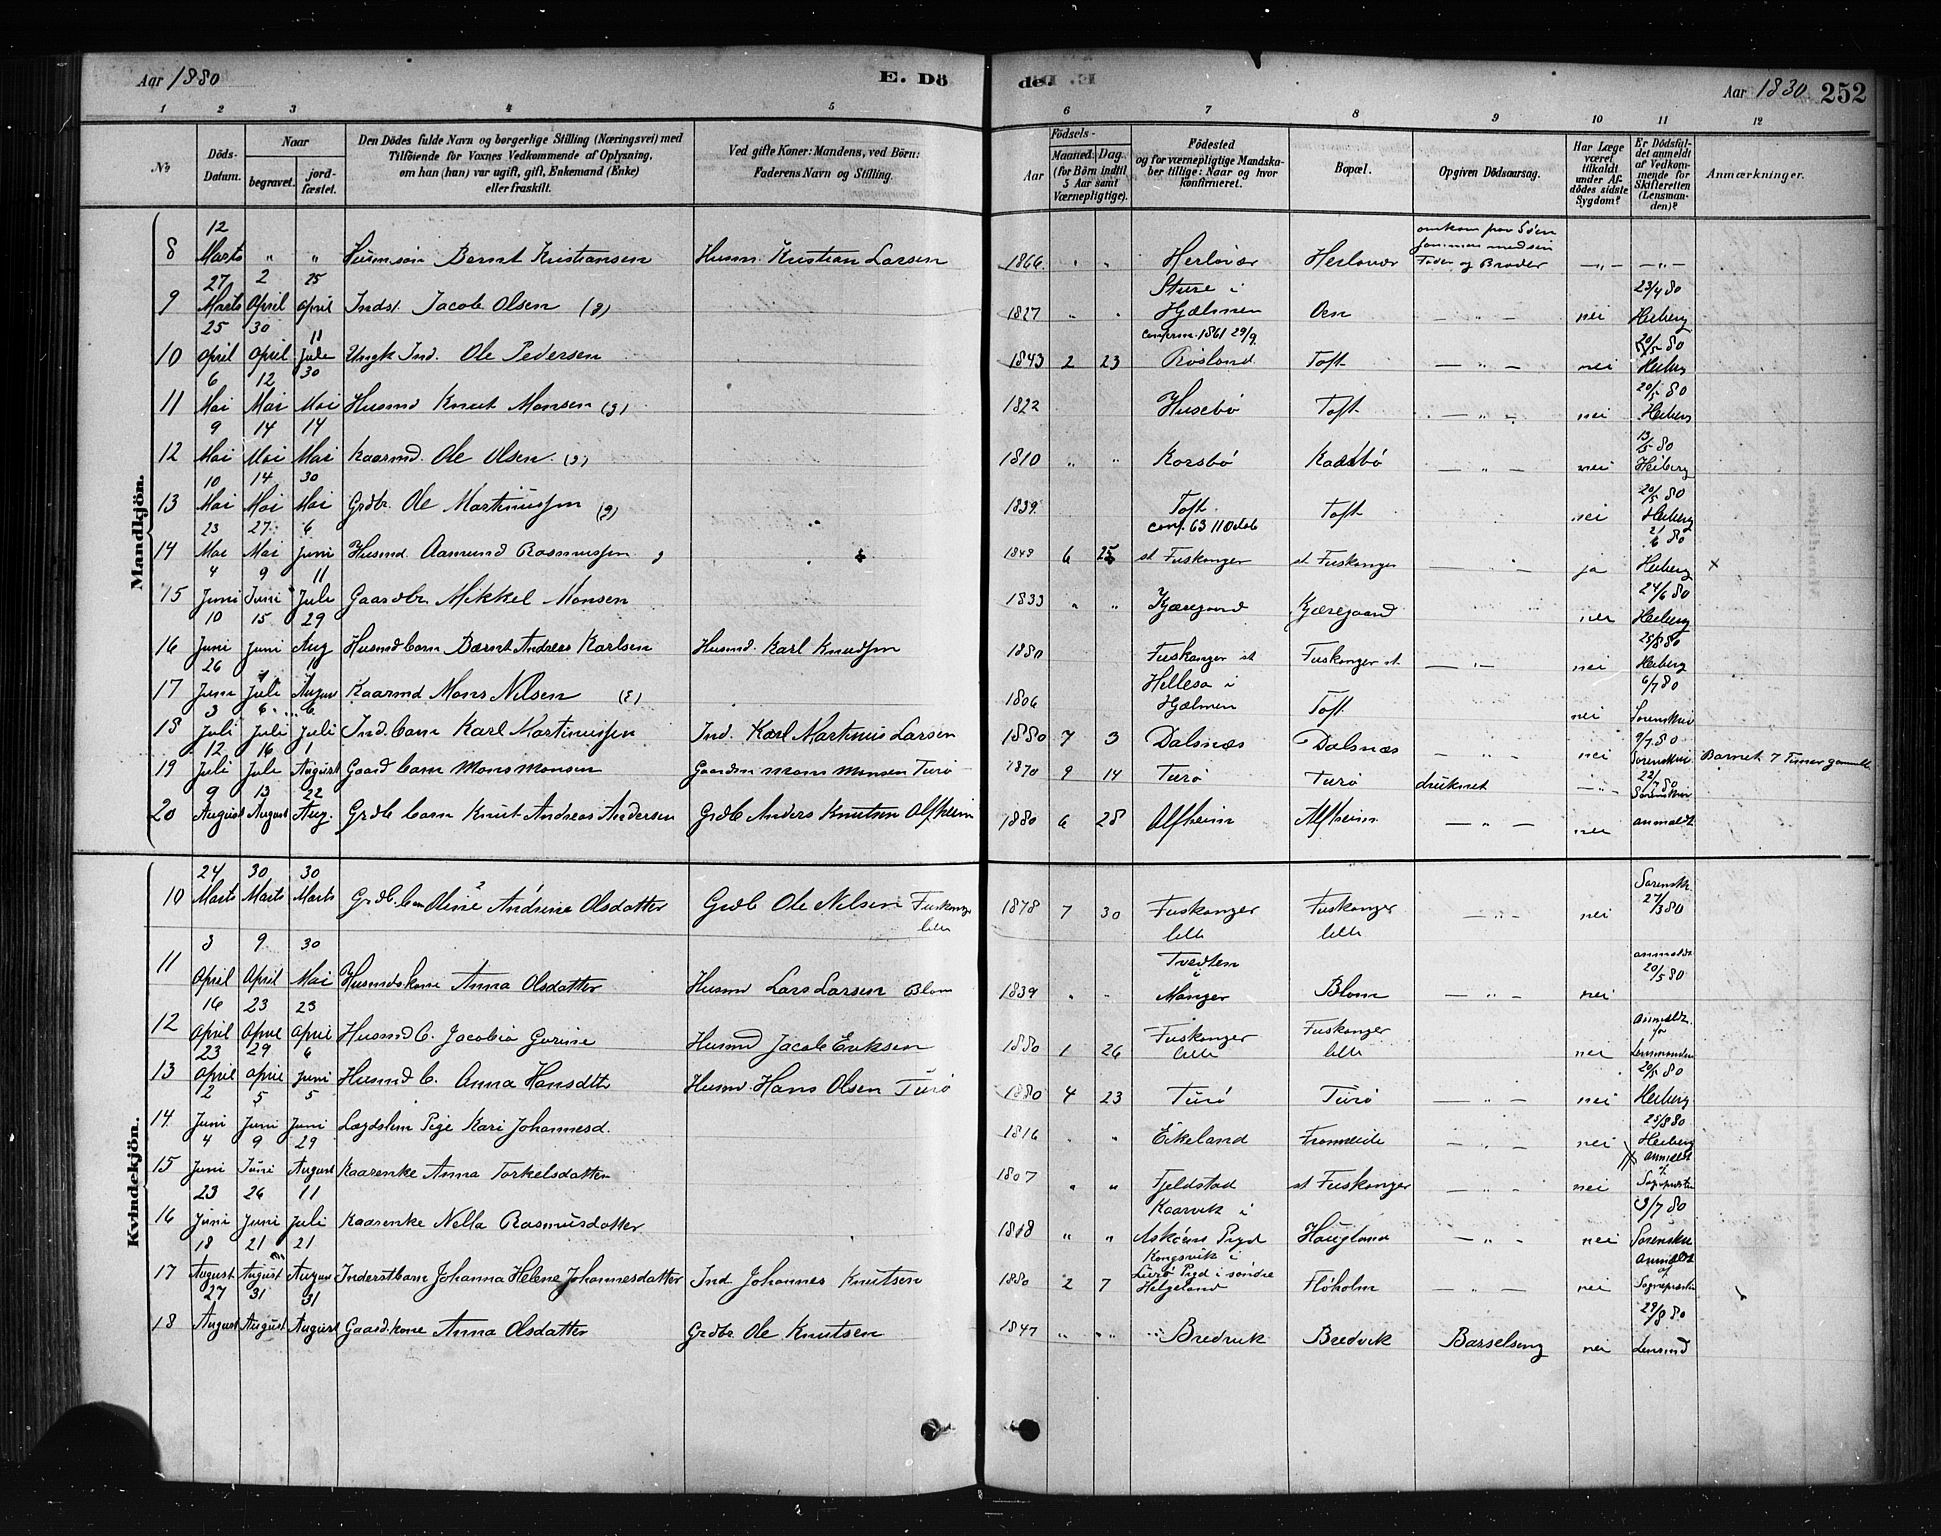 Aar 1880 E. Dö
de. Aar 1880 252
1 2 3 4 5 6 7 8 9 10 11 12
No
Döds-Datum.
Naar
begravet.
jord-fæstet.
Den Dödes fulde Navn og borgerlige Stilling (Næringsvei) med
Tilföiende for Voxnes Vedkommende af Oplysning,
om han (hun) var ugift, gift, Enkemand (Enke)
eller fraskilt.
Ved gifte Koner: Mandens, ved Börn:
Faderens Navn og Stilling.
Aar
Födsels-
Maaned. Dag.
(for Börn indtil
5 Aar samt
Værnepligtige).
Födested
og for værnepligtige Mandska-
ber tillige: Naar og hvor
konfirmeret.
Bopæl.
Opgiven Dödsaarsag.
Har Læge
været
tilkaldt
under Af-
dödes sidste
Sygdom?
Er Dödsfal-
det anmeldt
af Vedkom-
mende for
Skifteretten
(Lensman-
den)?
Anmærkninger.
Mandkjön.
8 12 Marts " " Husmsön Bernt Kristiansen Husm. Kristian Larsen 1866 " " Herløvær Herløvær omkom paa Søen sammen med sin Fader og Broder —"— —"—
9 27 Marts 2 April 25 April Indst. Jacob Olsen (g) 1827 " " Sture i Hjelmen Oen — " — nei 23/4 80 Heiberg
10 25 April 30 April 11 Jule Ungk Ind. Ole Pedersen 1843 2 23 conferm. 1861 29/9 Røsland Toft — " — nei 20/5 80 Heiberg
11 6 Mai 12 Mai 30 Mai Husmd Knut Monsen (g) 1822 Husebö Toft — " — nei 20/5 80 Heiberg
12 9 Mai 14 Mai 14 Mai Kaarmd. Ole Olsen (g) 1810 " " Korsbö Kadsbö — " — nei 13/5 80 Heiberg
13 10 Mai 14 Mai 30 Mai Grdbr. Ole Martinussen (g) 1839 Toft conf. 63 11 Octob Toft nei 20/5 80 Heiberg
14 23 Mai 27 Mai 6 Juni Husmd. Aamund Rasmussen g 1843 6 25 st Fuskanger st Fuskanger — " — ja 21/6 80 Heiberg x
15 4 Juni 9 Juni 11 Jule Gaardbr. Mikkel Monsen 1833 " " Kjæregaard Kjæregaard nei 24/6 80 Heiberg
16 10 Juni 15 Juni 29 Aug Husmdbarn Bærnt Andreas Karlsen Husmd. Karl Knudsen 1880 Fuskanger st Fuskanger st. — " — nei 25/8 80 Heiberg
17 26 Juni 4 Juli 1 August Kaarmd Mons Nilsen (E) 1806 Hellesø i Hjelmen Toft nei 6/7 80 Sorenskriv
18 3 Juli 6 Juli 6 Juli Ind. barn Karl Martinussen Ind. Karl Martinus Larsen 1880 7 3 Dalsnæs Dalsnæs — " — nei 9/7 80 Sorenskriv Barnet 7 Timer gammelt
19 12 Juli 16 Jule 1 August Gaardbarn Mons Monsen Gaardm Mons Monsen Turö 1870 9 14 Turö Turö druknet — " — 22/7 80 Sorenskriv
20 9 August 13 August 22 Aug. Grdb barn Knut Andreas Andersen Grdb Anders Knutsen Alfheim 1880 6 28 Alfheim Alfheim — " — nei anmeldt
Kvindekjön.
10 24 Marts 30 Marts 30 Marts Grdb. barn Oline Andrine Olsdatter Grdb Ole Nelsen Fuskanger lille 1878 7 30 Fuskanger lille Fuskanger lille — " — nei Sorenskr. 27/3 80
11 3 April 9 April 30 Mai Husmdskone Anna Olsdatter Husmd Lars Larsen Blom 1839 " " Tvedten i Manger Blom — " — nei anmeldt 20/5 80
12 16 April 23 April 23 April Husmd b. Jacobia Gurine Husmd Jacob Eriksen 1880 1 26 Fuskanger lille Fuskanger lille nei anmeldt for Lensmanden
13 23 April 29 April 6 Juni Husmd b. Anna Hansdtr Husm. Hans Olsen Turö 1880 4 23 Turö Turö — " — nei 20/5 80 Heiberg
14 2 Juni 5 Juni 5 Juni Lægdslem Pige Kari Johannesd. 1816 " " Eikeland Frommreide — " — nei 25/8 80 Heiberg
15 4 Juni 9 Juni 29 August Kaarenke Anna Torkelsdatter 1807 " " Fjeldstad st Fuskanger — " — nei anmeldt
16 23 Juni 26 Juni 11 Juli Kaarenke Nella Rasmusdatter 1818 " " Kaarvik i Askøens Pigd Haugland — " — nei 3/7 80 Sorenskr
17 18 August 21 August 21 August Inderstbarn Johanna Helene Johannesdatter Ind Johannes Knutsen 1880 2 7 Kongsvik i Lurö Pigd i söndre Helgeland Flöholm — " — nei anmeldt af Sogneprsten
18 27 August 31 August 31 August Gaardkone Anna Olsdatter Grdbr. Ole Knutsen 1847 " " Bredvik Bredvik Barselseng nei 29/8 80 Lensmd